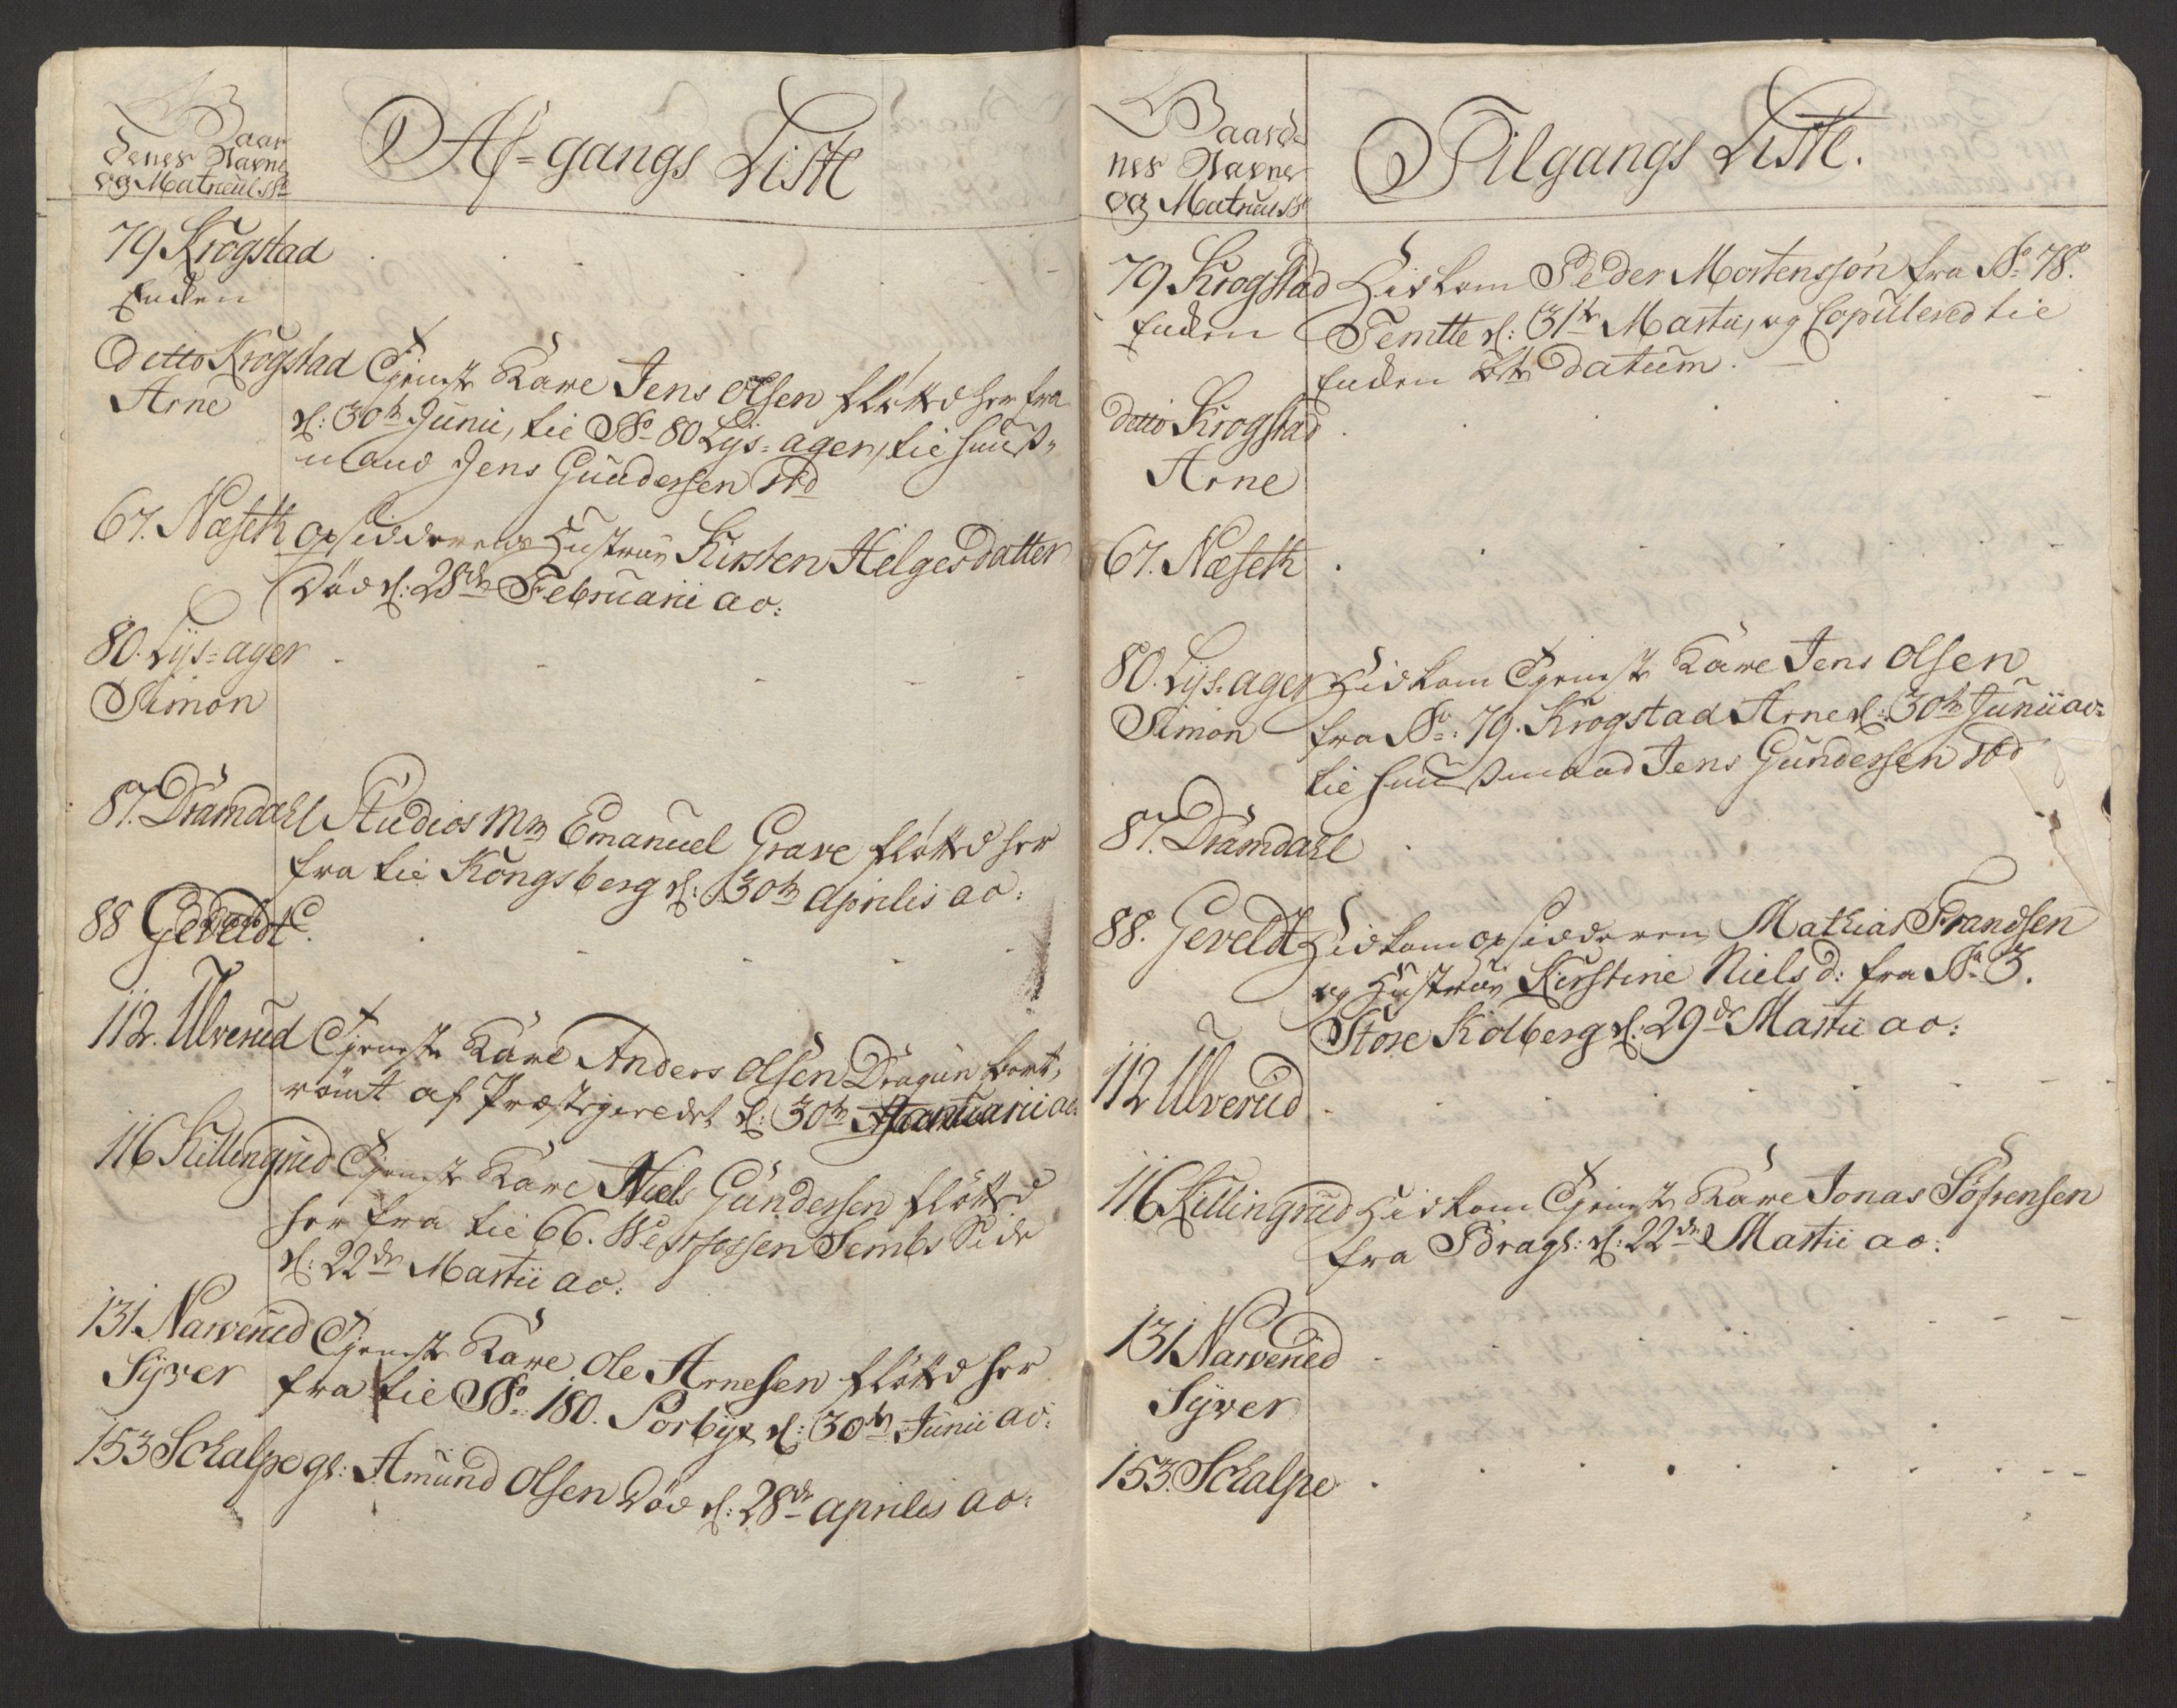 Gaar
denes Navne
og Matricul No
Af-gangs Liste
79 Krogstad
Enchen
Ditto Krogstad Tjeneste Karl Jens Olsen fløtted her fra
Arne
d: 30te Junii, til No 80 Lys-ager, til Huuß-
mand Jens Gundersen sted
67. Næseth Opsidderens Hustrue Kirsten Helgesdatter
Død d: 28de Februarii ao:
80. Lys-ager
Simon
87. Dramdahl Studios Mm Emanuel Grave fløtted her
fra til Kongsberg d: 30te Aprilis ao:
88 Geveldt
112. Ulverud Tjeneste Karl Anders Olsen Dragun bort-
rømt af Præstegieldet d: 30te Januarii ao:
116 Killingrud Tjeneste Karl Niels Gundersen fløtted
her fra til 66. Westfossen Sembs Side
d: 22de Martii ao:
131. Narverud Tjeneste Karl Ole Arnesen fløtted her
Syver fra til No: 180. Sorbye d: 30te Junii ao:
153 Schalpe gl: Amund Olsen Død d: 28de Aprilis ao:
Gaarde
nes Navne
og Matricul No
Tilgangs Liste.
79 Krogstad Hidkom Peder Mortensøn fra No: 78.
Enchen Temtte d: 31te Martii, og Copulered til
Enchen datum.
ditto Krogstad
Arne
67. Næseth
80. Lys-ager Hidkom Tjeneste Karl Jens Olsen
Simon fra No: 79. Krogstad Arne d: 30te Junii ao:
til Huußmand Jens Gundersen sted
87. Dramdahl
88. Geveldt Hidkom Opsidderen Mathias Frandsen
og Hustrue Kirstine Niels d: fra No 3.
Store Kolberg d: 29de Martii ao:
112 Ulverud
116 Killingrud Hidkom Tjeneste Karl Jonas Sørensen
fra Bragn: d: 22de Martii ao:
131 Narverud
Syver
153. Schalpe